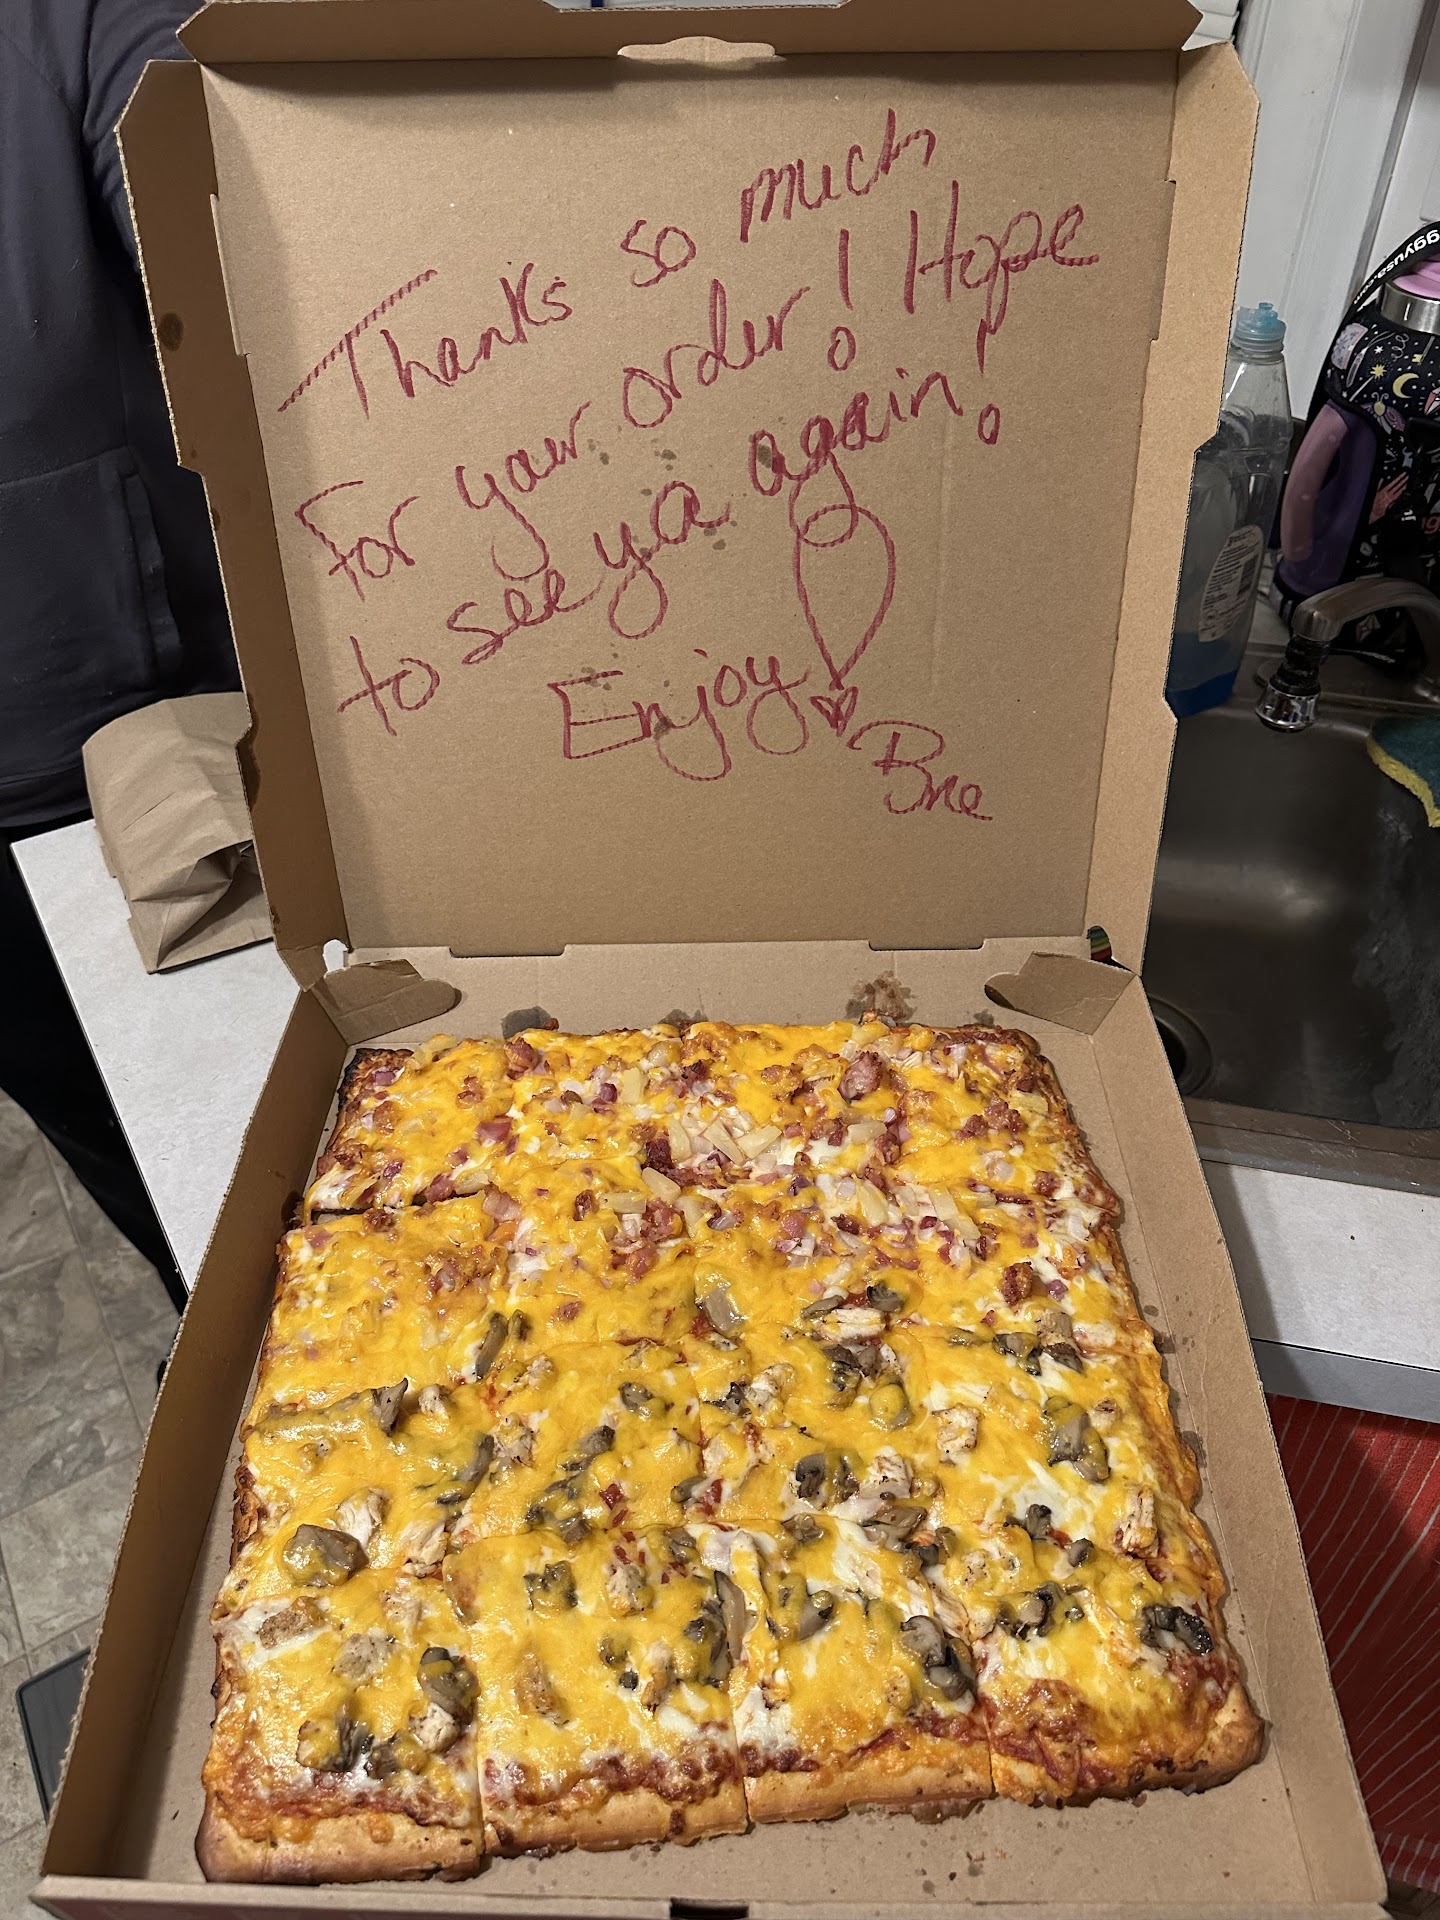 Thanks so much
For your order! Hope
to see ya again!
Enjoy
Bre
ggyusa.com